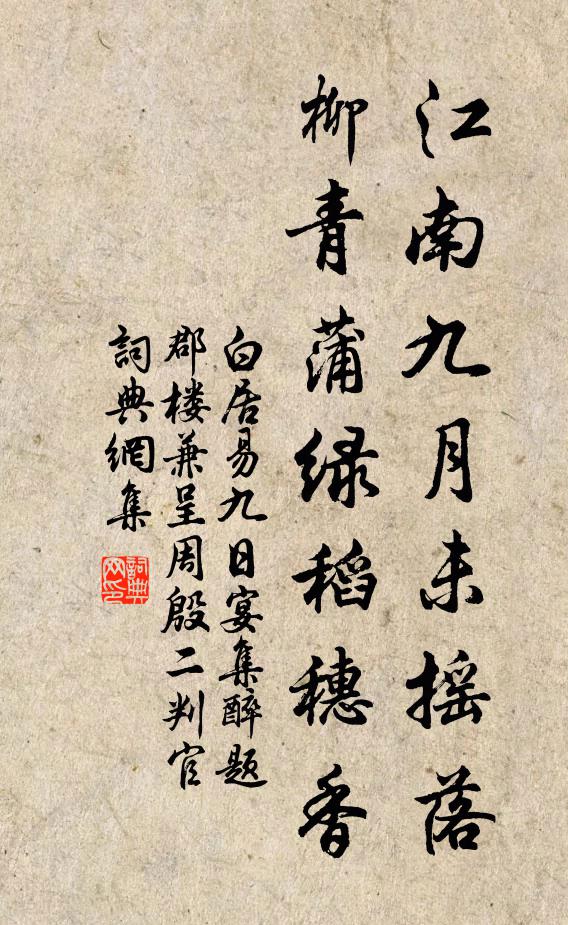 江南九月未摇落
柳青蒲绿稻穗香
白居易九日宴集醉题
郡楼兼呈周殷二判官
詞典網集
詞典
网印